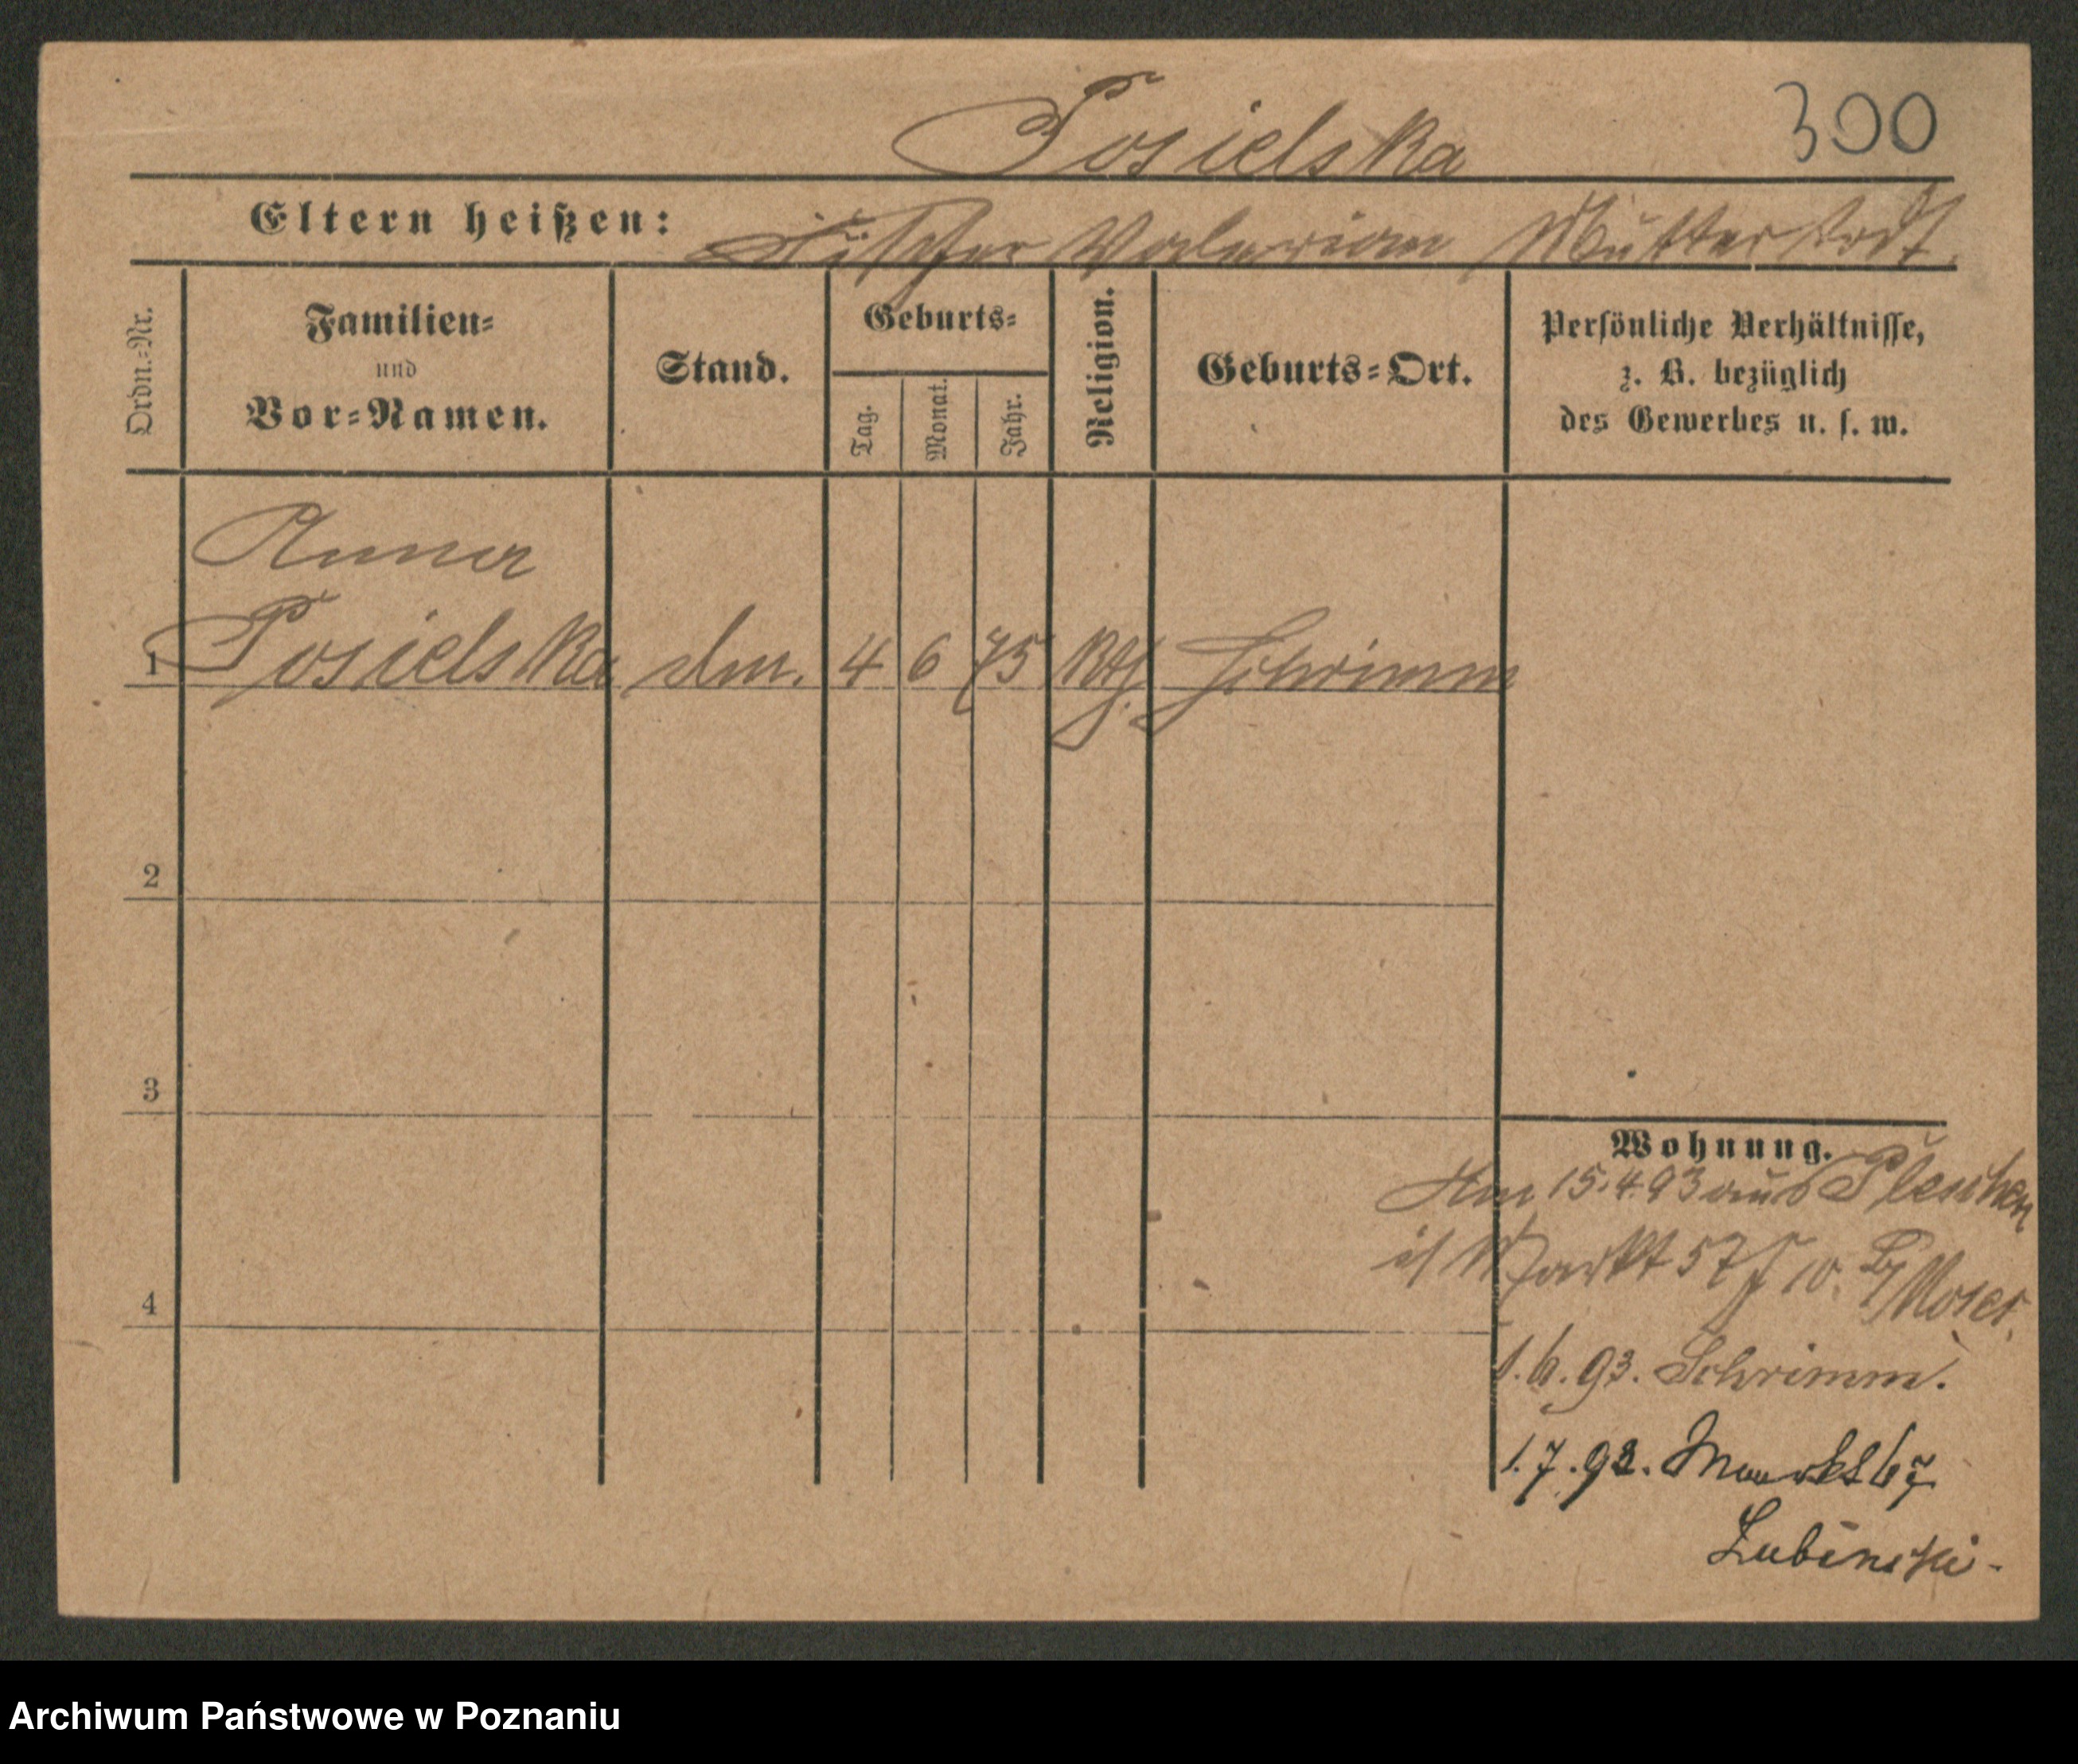 Posielska 300
Eltern heißen: Valerian Mutter todt.
Ordn.-Nr.
Familien-
und
Vor-Namen.
Stand.
Geburts-
Tag.
Monat.
Jahr.
Religion.
Geburts-Ort.
Persönliche Verhältnisse,
z. B. bezüglich
des Gewerbes u. s. w.
Anna
1 Posielska 4 6 75 Kth. Schrimm
2
3
4
Wohnung.
15.4.93 aus Pleschen
Markt 57 Moser.
1.6.93. Schrimm.
1.7.93. Markt 67
Lubinski-
Archiwum Państwowe w Poznaniu